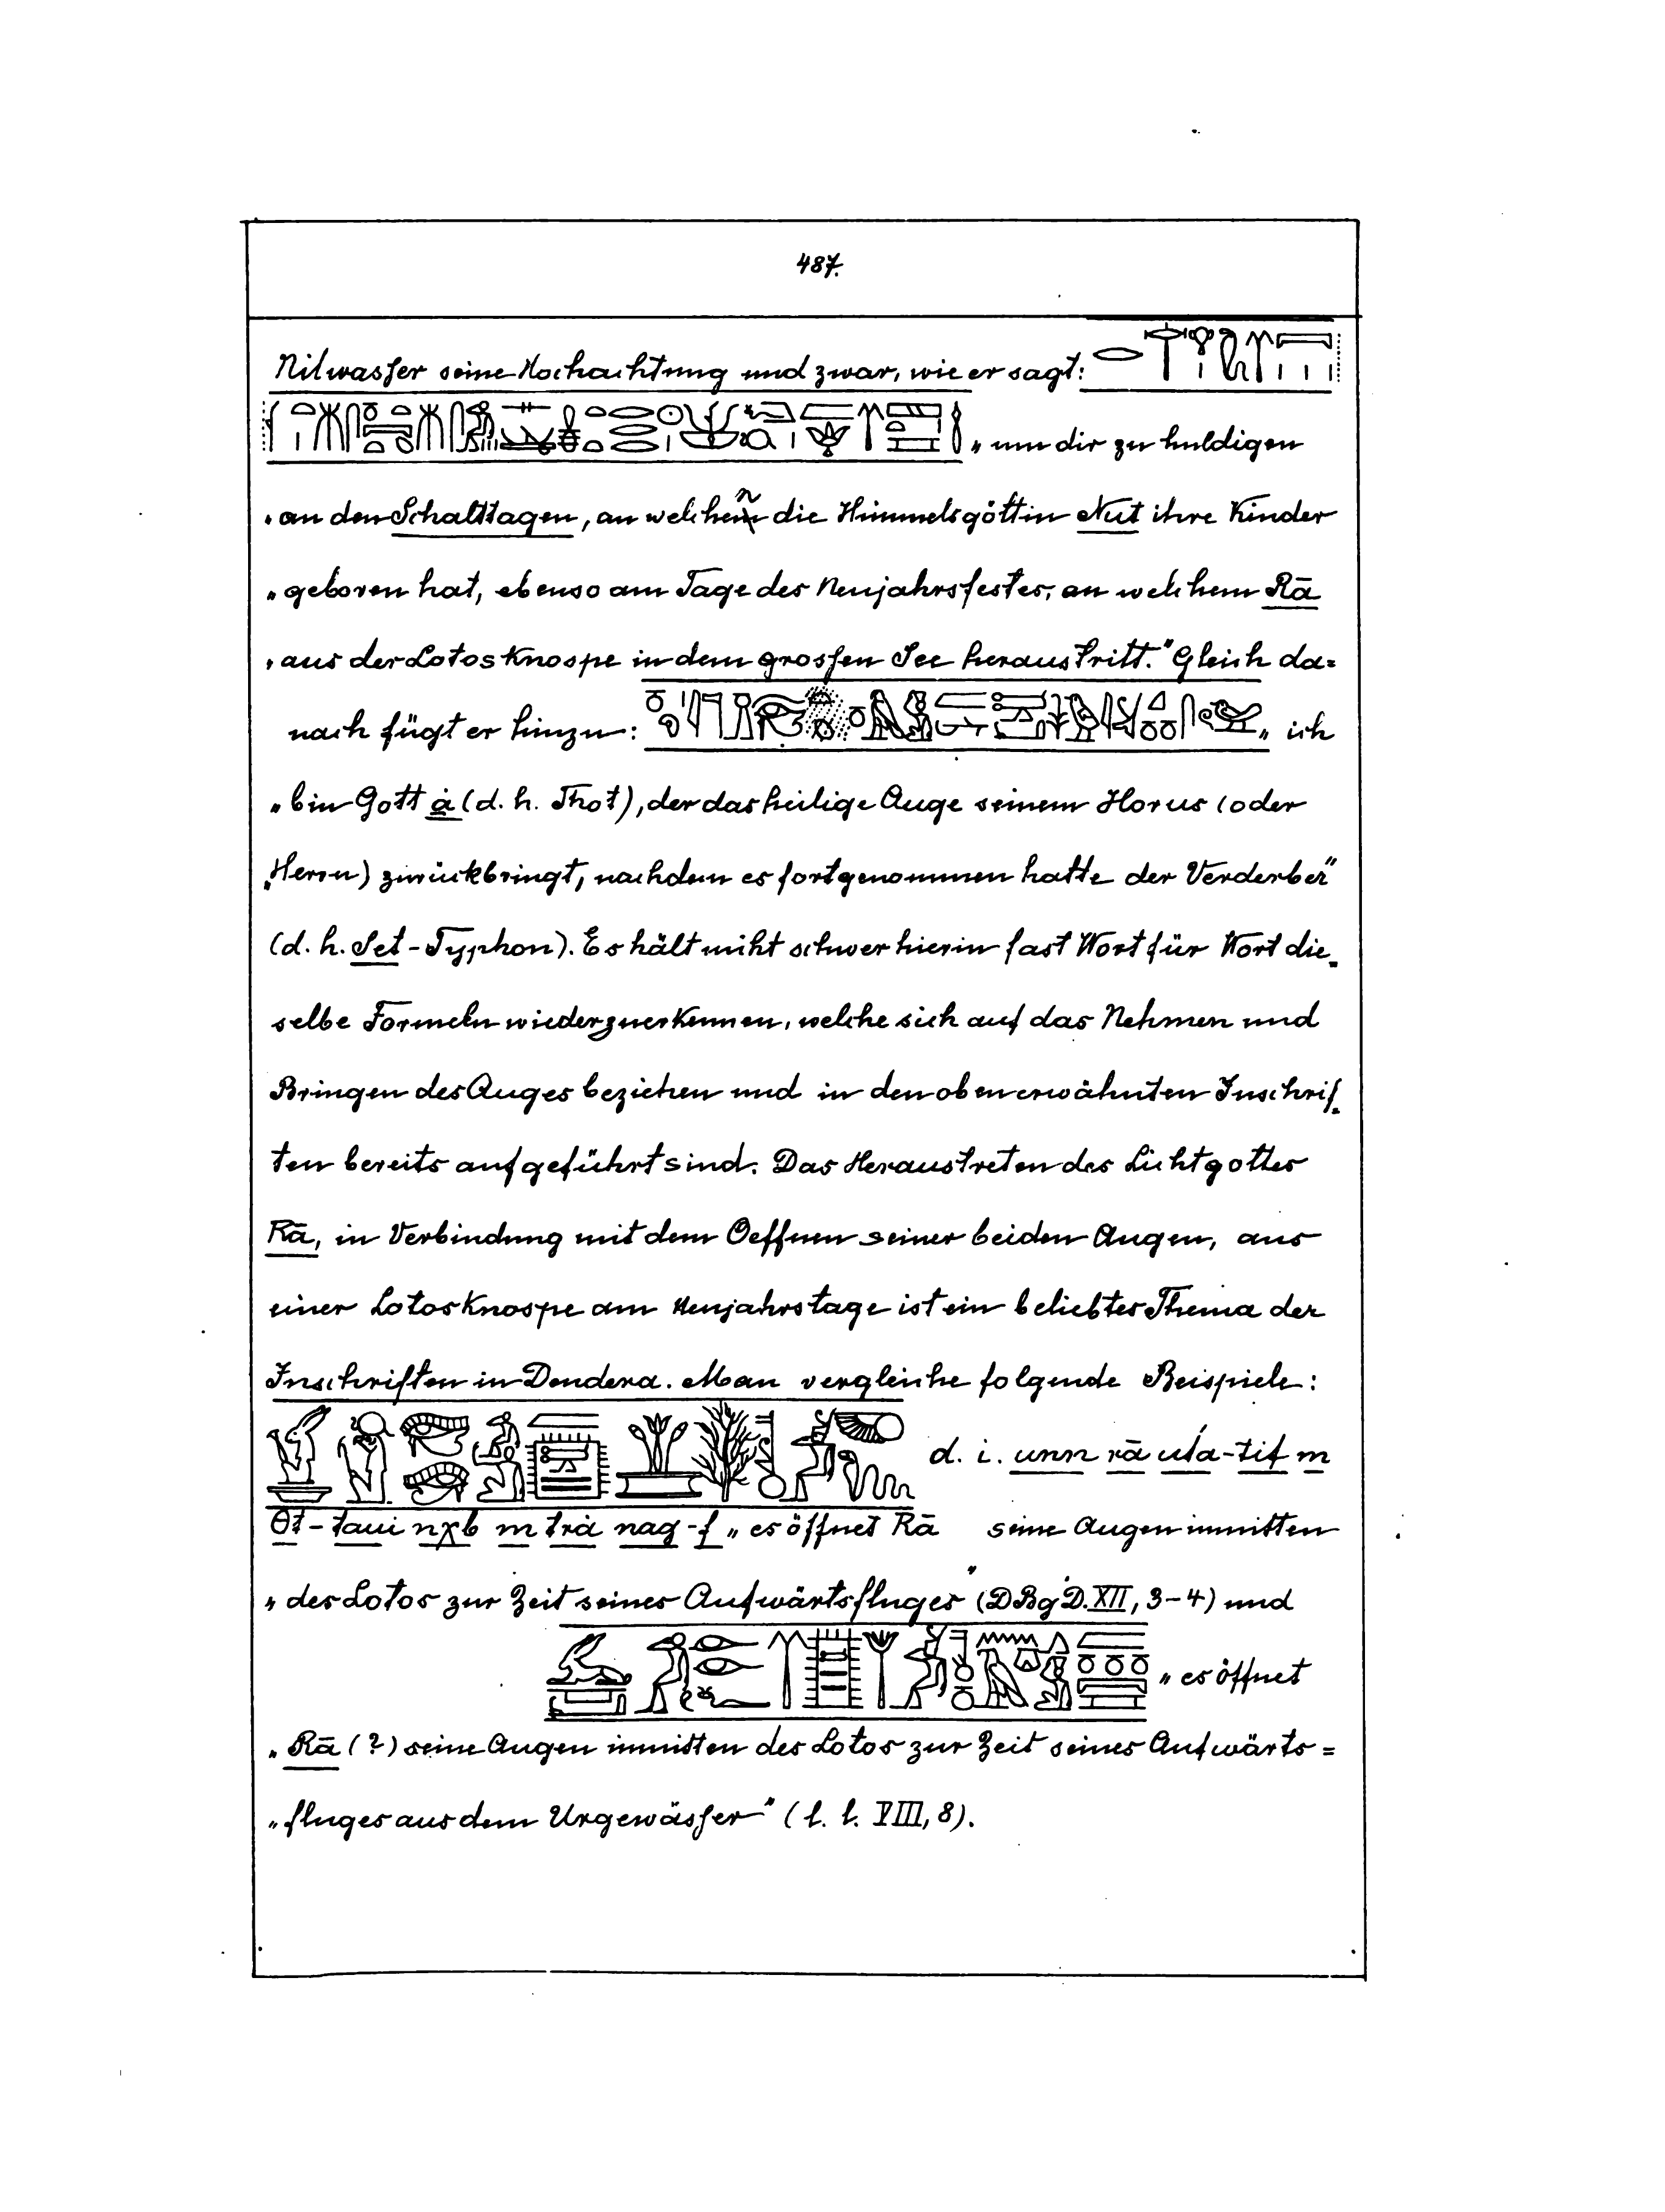 487.
Nilwasser seine Hochachtung und zwar, wie er sagt:
„ um dir zu huldigen
„ an den Schalttagen, an welchen die Himmelsgöttin Nut ihre Kinder
„ geboren hat, ebenso am Tage des Neujahrsfestes, an welchem Rā
„ aus der Lotosknospe in dem grossen See heraustritt." Gleich da=
nach fügt er hinzu: „ ich
„ bin Gott ȧ (d. h. Thot), der das heilige Auge seinem Horus (oder
„Herrn) zurückbringt, nachdem es fortgenommen hatte der Verderber"
(d. h. Set-Typhon). Es hält nicht schwer hierin fast Wort für Wort die-
selbe Formeln wiederzuerkennen, welche sich auf das Nehmen und
Bringen des Auges beziehen und in den oben erwähnten Inschrif-
ten bereits aufgeführt sind. Das Heraustreten des Lichtgottes
Rā, in Verbindung mit dem Oeffnen seiner beiden Augen, aus
einer Lotosknospe am Neujahrstage ist ein beliebtes Thema der
Inschriften in Dendera. Man vergleiche folgende Beispiele:
d. i. unn rā uťa-tif m
taui nχb m trȧ nag-f „ es öffnet Rā seine Augen inmitten
„ des Lotos zur Zeit seines Aufwärtsfluges" (DBgD. XII, 3-4) und
„ es öffnet
„ Rā (?) seine Augen inmitten des Lotos zur Zeit seines Aufwärts=
„ fluges aus dem Urgewässer" (l. l. VIII, 8).